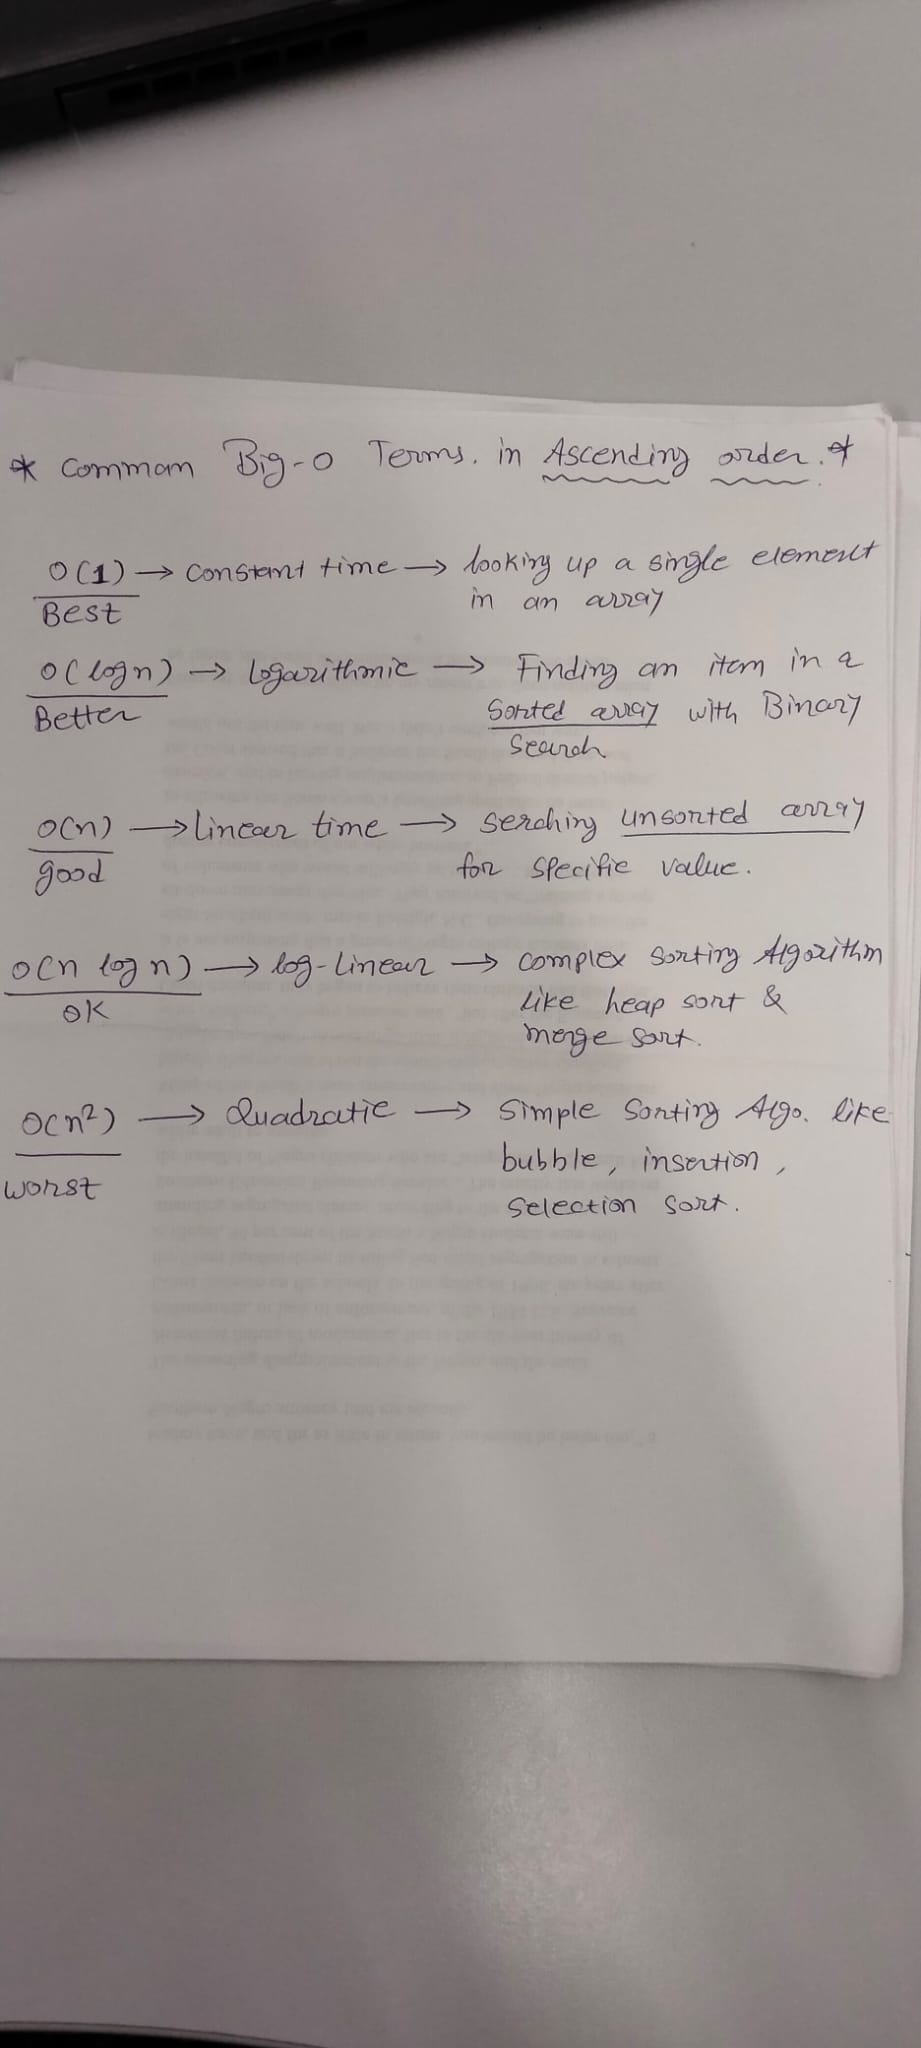 * Common Big-O Terms. in Ascending order. *
O(1) → constant time → looking up a single element
Best in an array
O(logn) → logarithmic → Finding an item in a
Better sorted array with Binary
Search
O(n) → linear time → serching unsorted array
good for specific value.
O(n log n) → log-linear → complex sorting Algorithm
OK like heap sort &
merge sort.
O(n²) → Quadratic → Simple Sorting Algo. like
worst bubble, insertion,
selection sort.